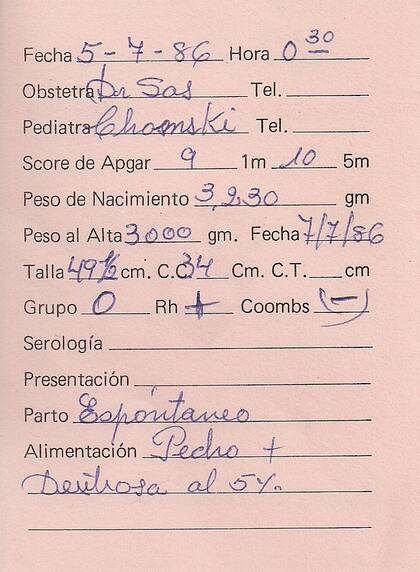 Fecha 5-7-86 Hora 0 30
Obstetra Dr Sas Tel.
Pediatra Chomski Tel.
Score de Apgar 9 1m 10 5m
Peso de Nacimiento 3,230 gm
Peso al Alta 3000 gm. Fecha 7/7/86
Talla 49½ cm. C.C. 34 Cm. C.T. cm
Grupo O Rh + Coombs (-)
Serología
Presentación
Parto Espontaneo
Alimentación Pecho +
Dextrosa al 5%.